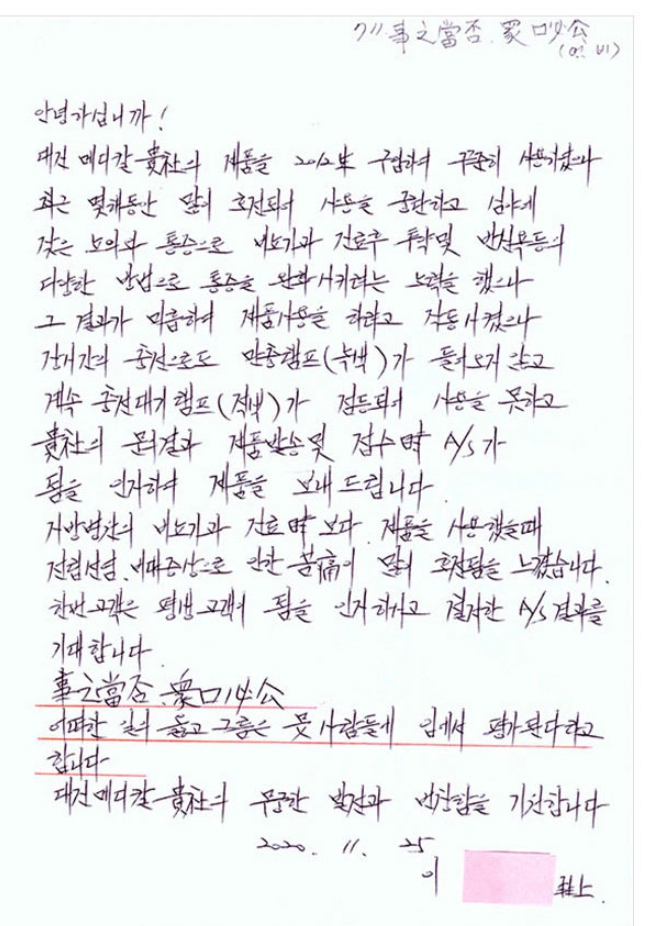 事之當否. 衆口必公
안녕하십니까!
대건 메디칼 貴社의 제품을 2012년 구입하여 꾸준히 사용하였으나
최근 몇해동안 많이 호전되어 사용을 중단하고 심야에
잦은 뇨의와 통증으로 비뇨기과 진료후 투약및 반신욕등의
다양한 방법으로 통증을 완화시키려는 노력을 했으나
그 결과가 미흡하여 제품사용을 하려고 작동시켰으나
장시간의 충전으로도 만충램프(녹색)가 들어오지 않고
계속 충전대기램프(적색)가 점등되어 사용을 못하고
貴社의 문의결과 제품발송및 접수時 A/S가
됨을 인지하여 제품을 보내드립니다.
지방병원의 비뇨기과 진료時보다 제품을 사용했을때
전립선염.비대증상으로 인한 苦痛이 많이 호전됨을 느꼈습니다.
한번고객은 평생고객이 됨을 인지하시고 철저한 A/S결과를
기대합니다.
事之當否.衆口必公
어떠한 일의 옳고 그름은 뭇사람들에 입에서 평가된다라고
합니다
대건메디칼 貴社의 무궁한 발전과 번창함을 기원합니다
2020. 11. 25
이 拜上.